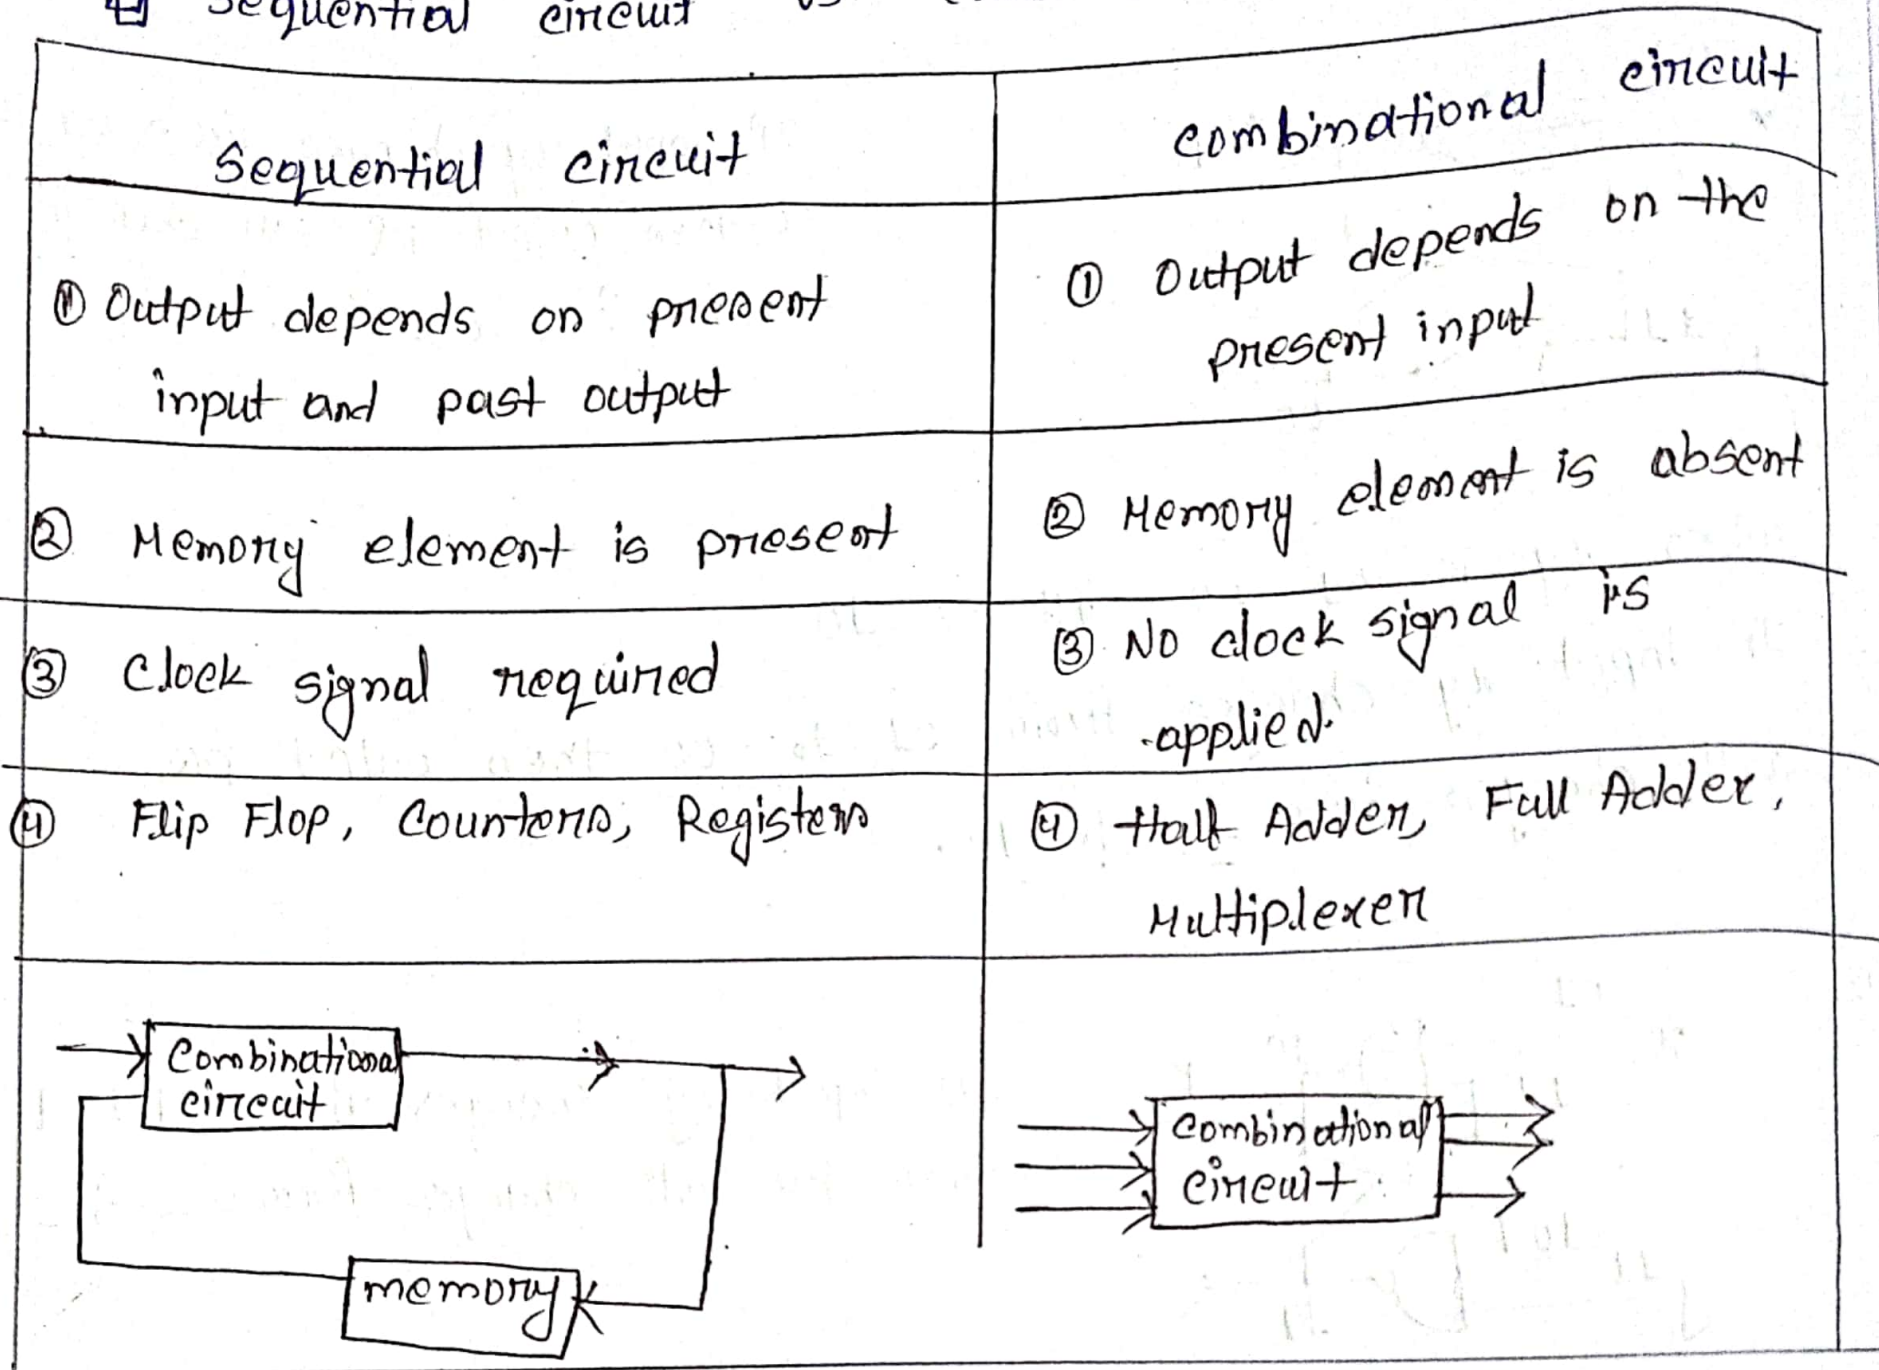 Sequential circuit vs
Sequential circuit
combinational circuit
① Output depends on present
input and past output
① Output depends on the
present input
② Memory element is present
② Memory element is absent
③ Clock signal required
③ No clock signal is
applied.
④ Flip Flop, Counters, Registers
④ Half Adder, Full Adder,
Multiplexer
Combinational
circuit
memory
Combinational
circuit